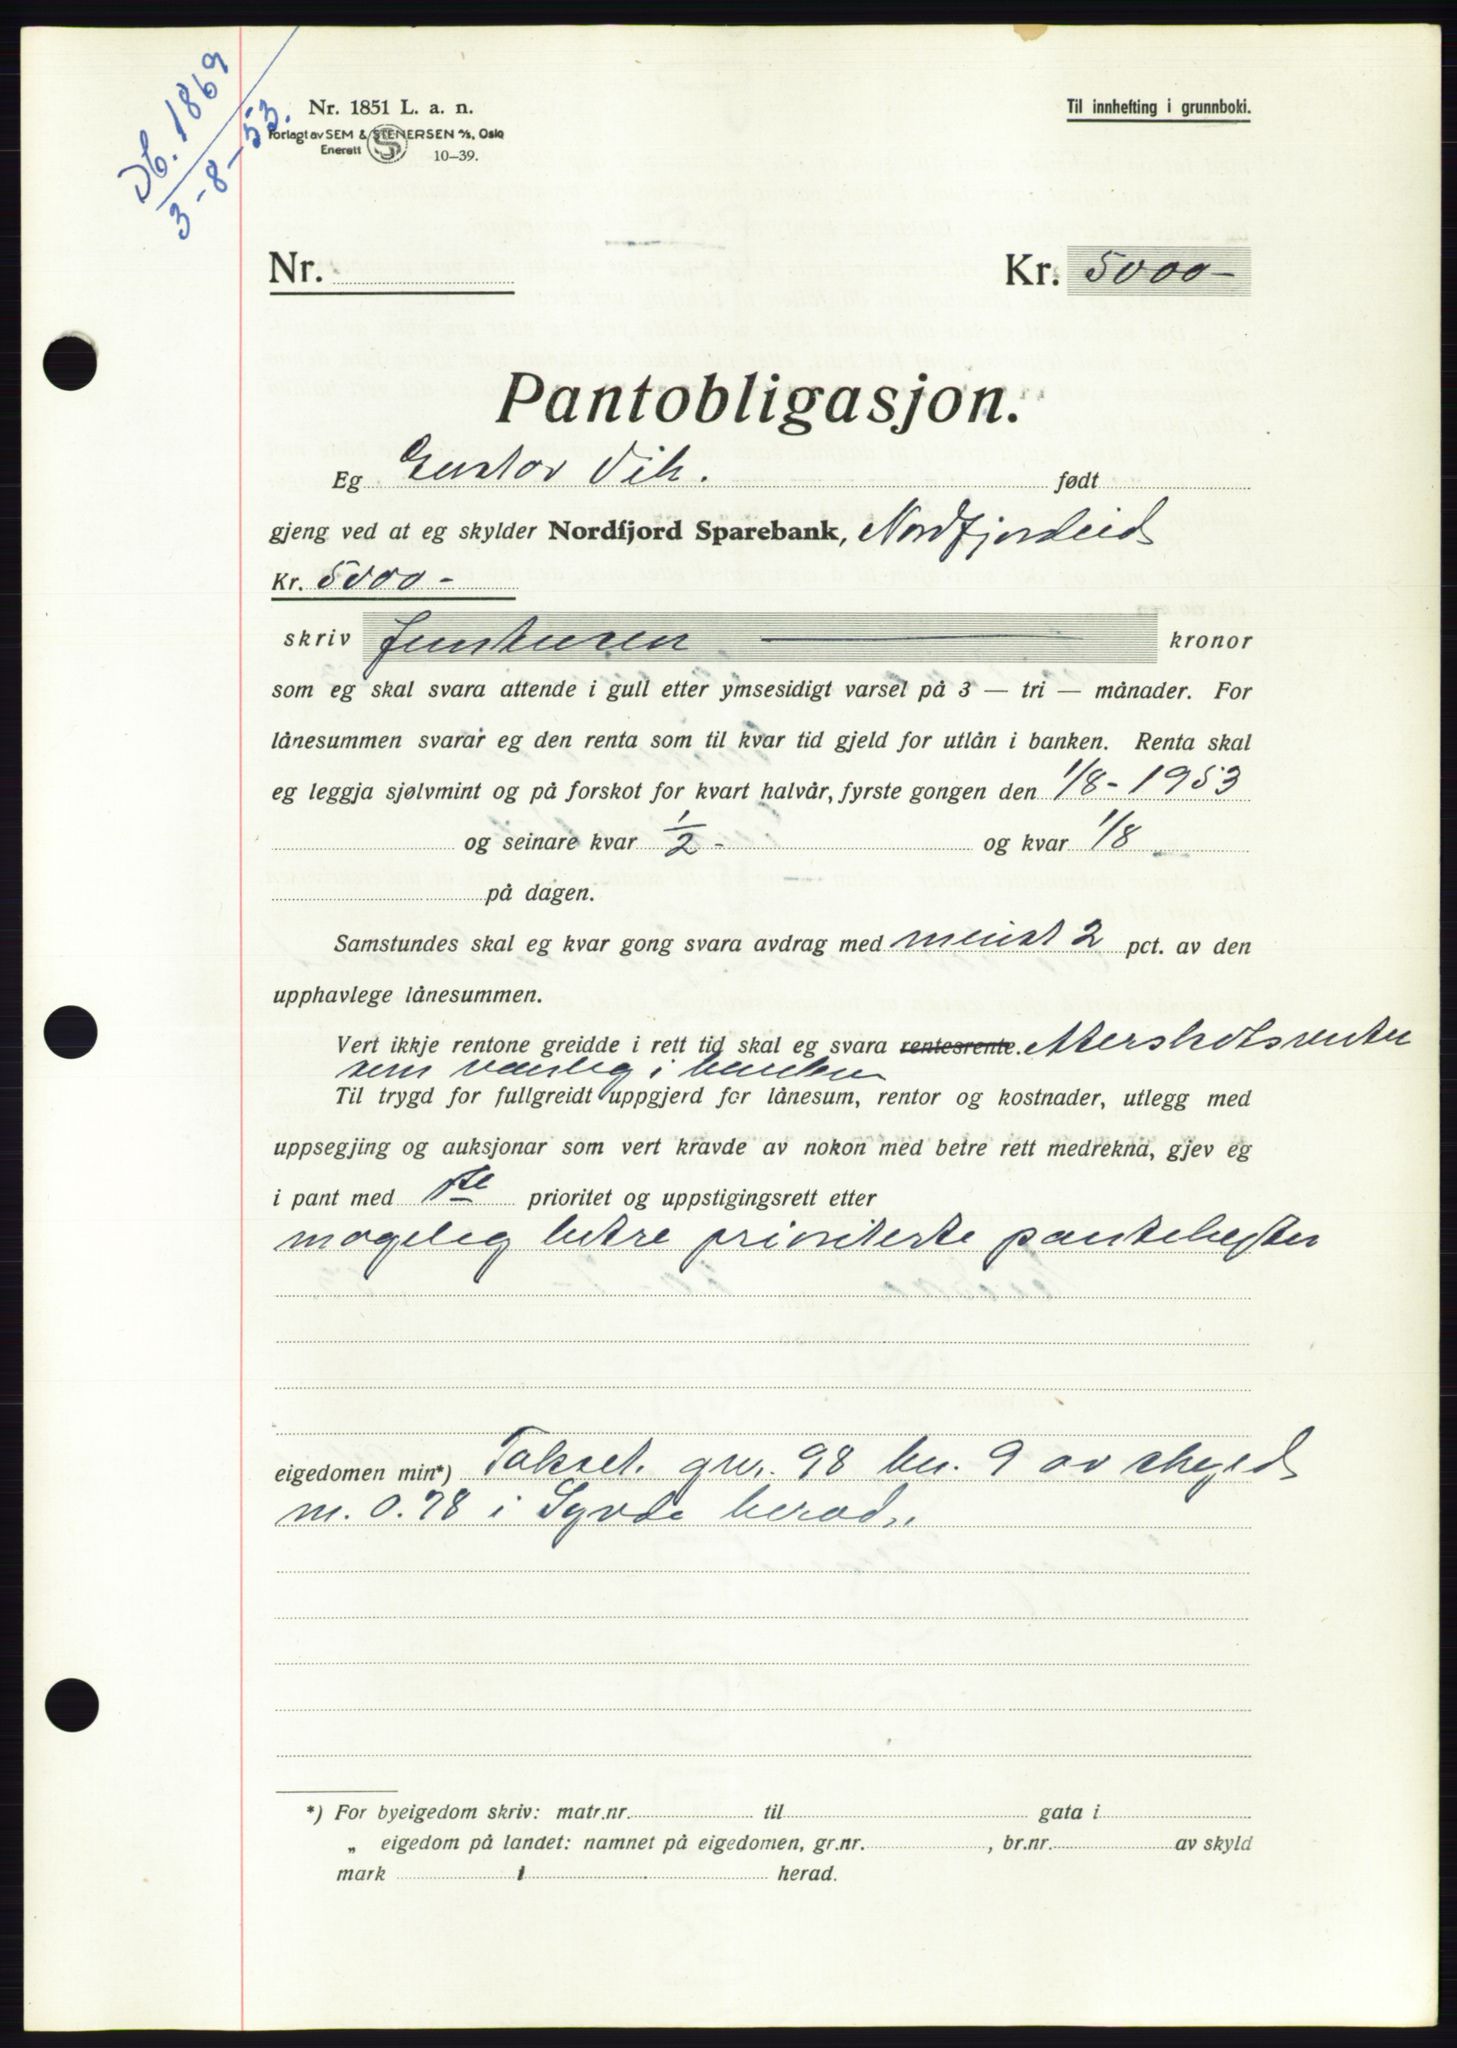 Db. 1869
3-8-53.
Nr. 1851 L. a. n.
Forlagt av SEM & STENERSEN A/S, Oslo
Enerett S 10-39.
Til innhefting i grunnboki.
Nr.
Kr. 5000-
Pantobligasjon.
Eg Gustav Vik. født
gjeng ved at eg skylder Nordfjord Sparebank, Nordfjordeid
Kr. 5000-
skriv femtusen kronor
som eg skal svara attende i gull etter ymsesidigt varsel på 3 — tri — månader. For
lånesummen svarar eg den renta som til kvar tid gjeld for utlån i banken. Renta skal
eg leggja sjølvmint og på forskot for kvart halvår, fyrste gongen den 1/8-1953
og seinare kvar 1/2- og kvar 1/8
på dagen.
Samstundes skal eg kvar gong svara avdrag med minst 2 pct. av den
upphavlege lånesummen.
Vert ikkje rentone greidde i rett tid skal eg svara rentesrente. Etterskotsrenter
som vanleg i banken
Til trygd for fullgreidt uppgjerd for lånesum, rentor og kostnader, utlegg med
uppsegjing og auksjonar som vert kravde av nokon med betre rett medrekna, gjev eg
i pant med 1ste prioritet og uppstigingsrett etter
mogeleg betre prioriterte pantehefter
eigedomen min*) gnr. 98 bn. 9 av skyld
m. 0.78 i Syvde herad.
*) For byeigedom skriv: matr.nr. til gata i
„ eigedom på landet: namnet på eigedomen, gr.nr. , br.nr. av skyld
mark i herad.